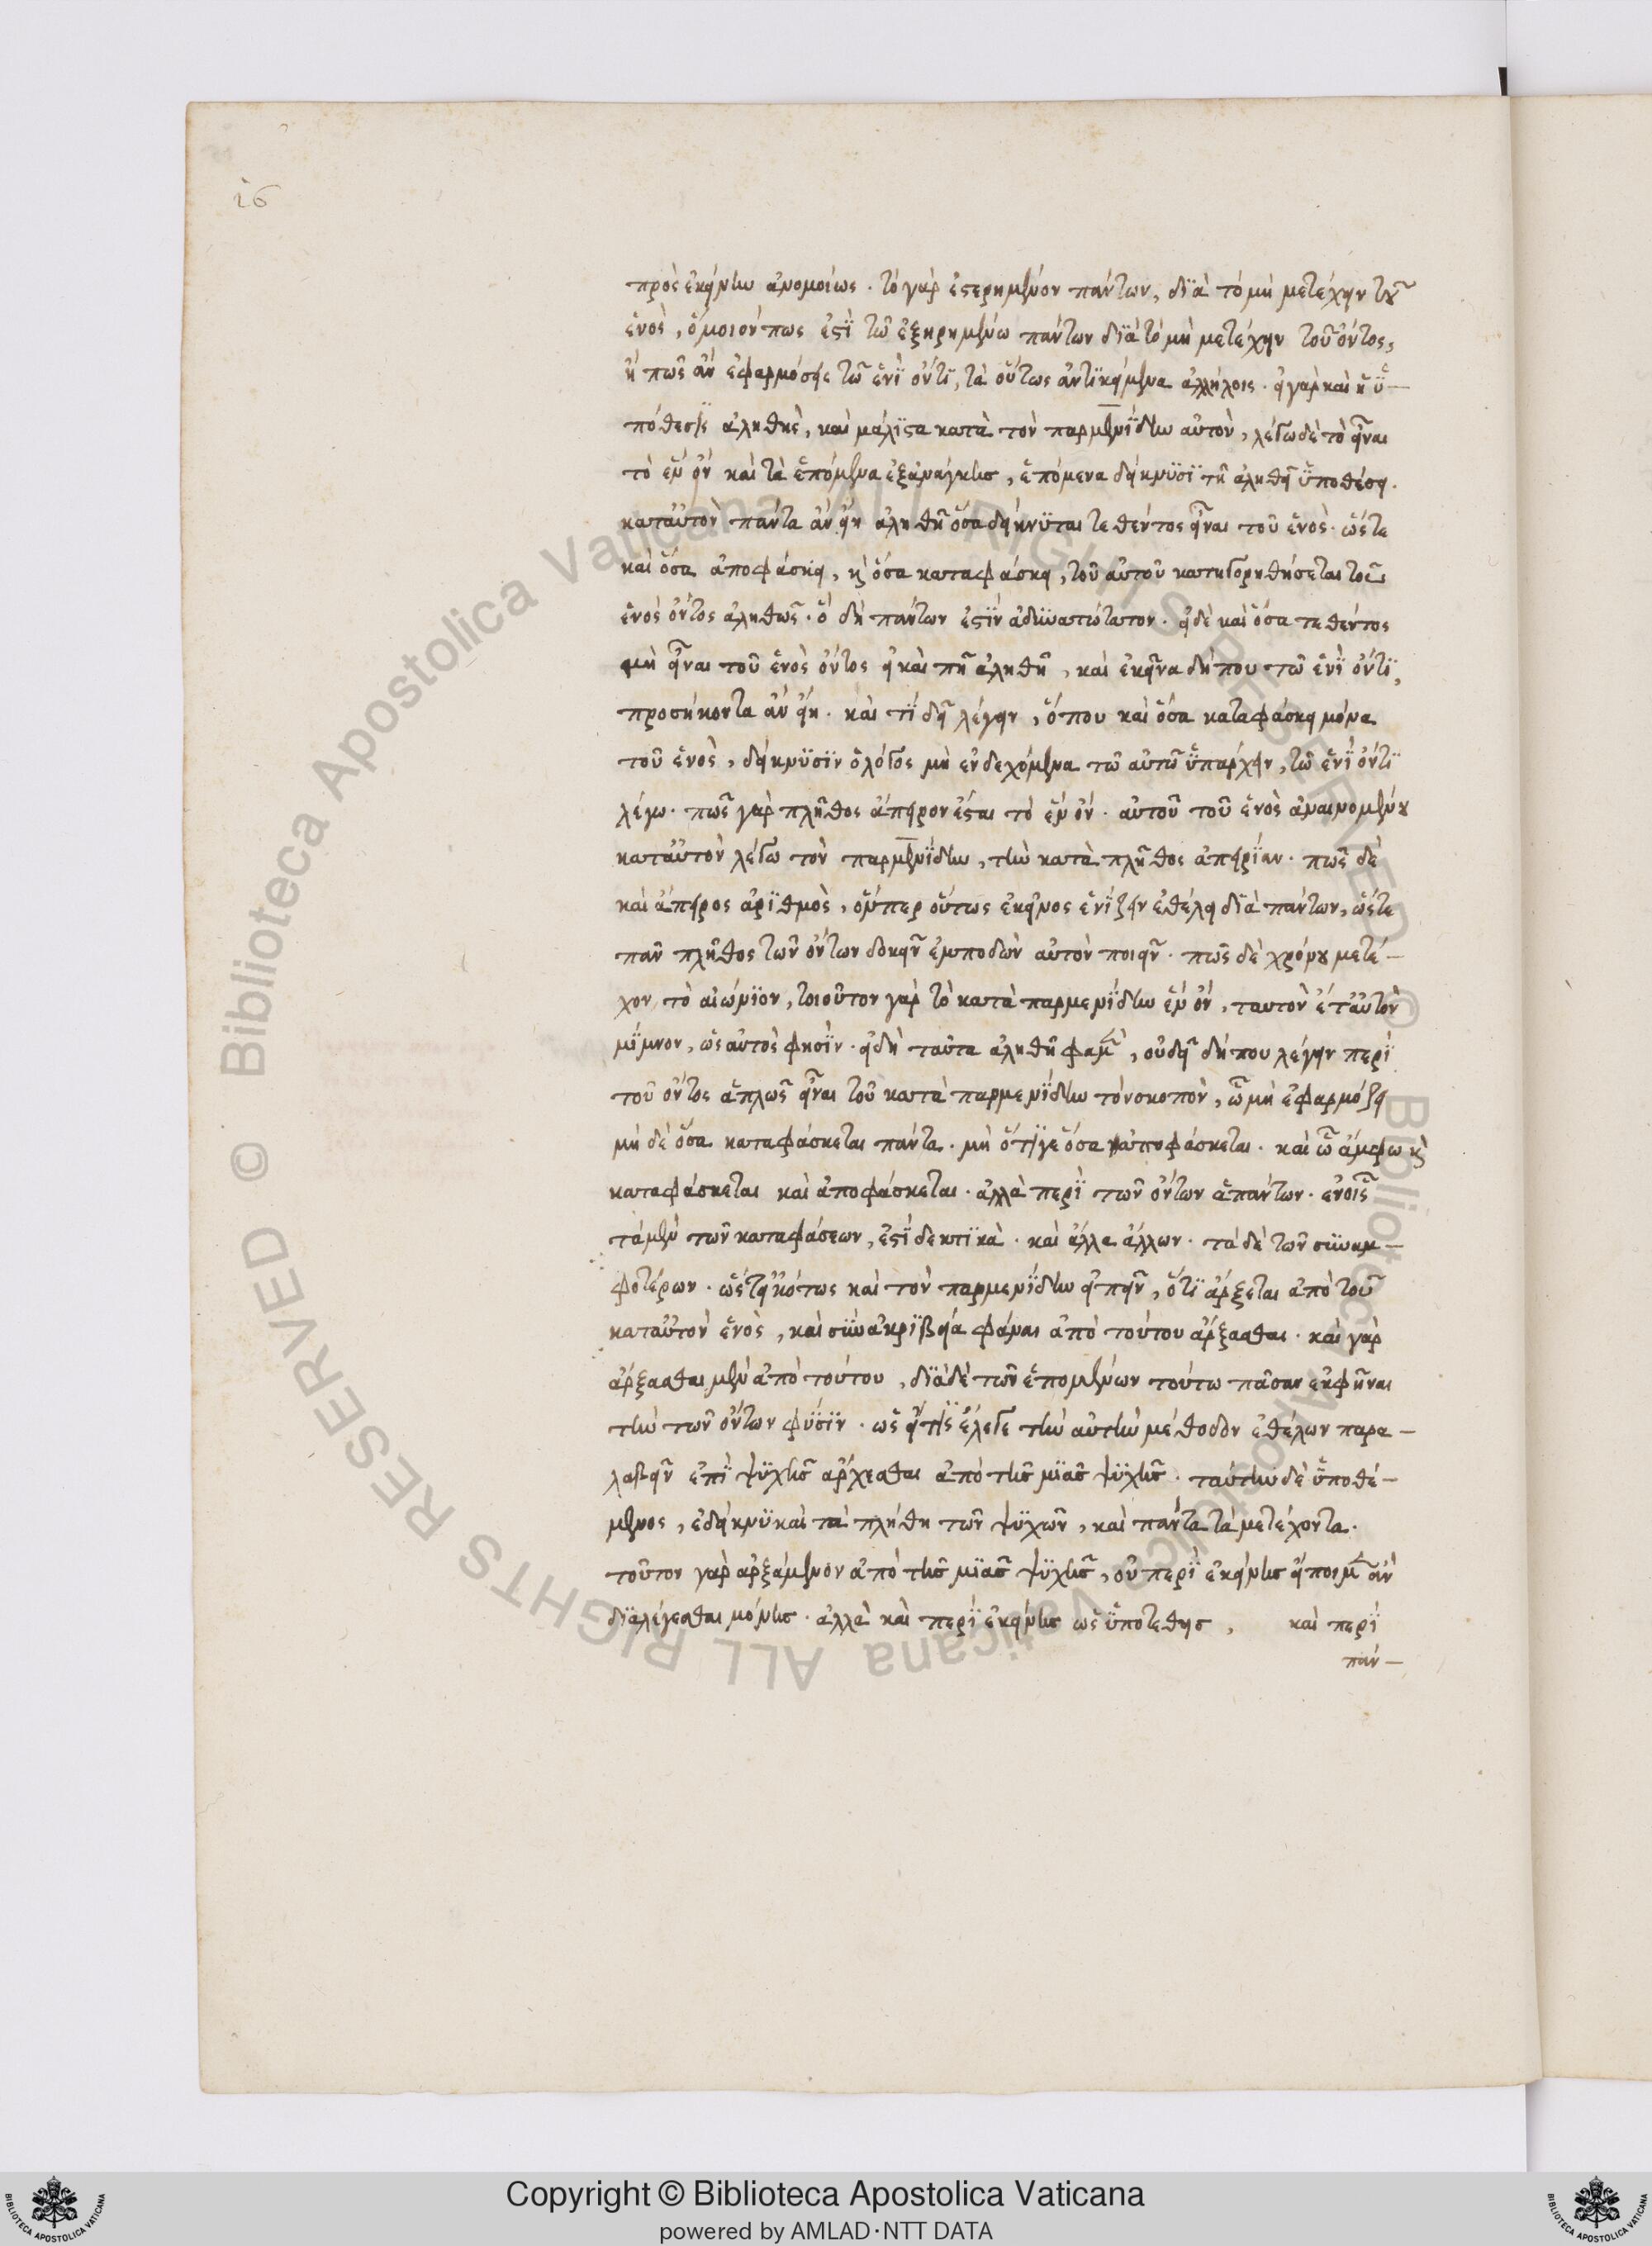 26
πρὸς ἐκείνην ἀνομοίως. τὸ γὰρ ἐστερημένον πάντων, διὰ τὸ μὴ μετέχειν τοῦ
ἑνὸς, ὅμοιόν πως ἐστὶ τῶ ἐξηρημένω πάντων διὰ τὸ μὴ μετέχειν τοῦ ὄντος,
ἢ πῶς ἂν ἐφαρμόσῃς τῶ ἑνὶ ὄντι, τὰ οὕτως ἀντικείμενα ἀλλήλοις. εἰ γὰρ καὶ ἡ ὑ-
πόθεσις ἀληθὴς, καὶ μάλιστα κατὰ τὸν παρμενίδην αὐτὸν, λέγω δὲ τὸ εἶναι
τὸ ἓν ὂν καὶ τὰ ἑπόμενα ἐξανάγκης, ἑπόμενα δείκνυσι τῆ ἀληθεῖ ὑποθέσει.
καταὐτὸν πάντα ἂν εἴη ἀληθῆ ὅσα δείκνυται τεθέντος εἶναι τοῦ ἑνὸς. ὥστε
καὶ ὅσα ἀποφάσκει, κ̀ ὅσα καταφάσκει, τοῦ αὐτοῦ κατηγορηθήσεται τοῦ
ἑνὸς ὄντος ἀληθῶς. ὃ δὴ πάντων ἐστὶν ἀδυνατώτατον. εἰ δὲ καὶ ὅσα τεθέντος
μὴ εἶναι τοῦ ἑνὸς ὄντος εἰ καὶ πῆ ἀληθῆ, καὶ ἐκεῖνα δήπου τῶ ἑνὶ ὄντι,
προσήκοντα ἂν εἴη. καὶ τί δεῖ λέγειν, ὅπου καὶ ὅσα καταφάσκει μόνα
τοῦ ἑνὸς, δείκνυσιν ὁ λόγος μὴ ἐνδεχόμενα τῶ αὐτῶ ὑπάρχειν, τῶ ἑνὶ ὄντι
λέγω. πῶς γὰρ πλῆθος ἄπειρον ἔσται τὸ ἓν ὂν. αὐτοῦ τοῦ ἑνὸς ἀναινομένου
καταὐτὸν λέγω τὸν παρμενίδην, τὴν κατὰ πλῆθος ἀπειρίαν. πῶς δὲ
καὶ ἄπειρος ἀριθμὸς, ὅνπερ οὕτως ἐκεῖνος ἑνίζειν ἐθέλει διὰ πάντων, ὥστε
πᾶν πλῆθος τῶν ὄντων δοκεῖν ἐμποδὼν αὐτὸν ποιεῖν. πῶς δὲ χρόνου μετέ-
χον τὸ αἰώνιον, τοιοῦτον γὰρ τὸ κατὰ παρμενίδην ἓν ὂν, ταυτὸν ἐταὐτὸν
μίμνον, ὡς αὐτὸς φησὶν. εἰ δὴ ταῦτα ἀληθῆ φαμὲν, οὐδεῖ δήπου λέγειν περὶ
τοῦ ὄντος ἁπλῶς εἶναι τοῦ κατὰ παρμενίδην τὸν σκοπὸν, ὧ μὴ ἐφαρμόζει
μὴ δὲ ὅσα καταφάσκεται πάντα. μὴ ὅτι γε ὅσα ἀποφάσκεται. καὶ ὧ ἄμφω κ̀
καταφάσκεται καὶ ἀποφάσκεται. ἀλλὰ περὶ τῶν ὄντων ἁπάντων. ἐν οἷς
τὰ μὲν τῶν καταφάσεων, ἐστὶ δεκτικὰ. καὶ ἄλλα ἄλλων. τὰ δὲ τῶν συναμ-
φοτέρων. ὥστ' εἰκότως καὶ τὸν παρμενίδην εἰπεῖν, ὅτι ἄρξεται ἀπὸ τοῦ
καταὐτὸν ἑνὸς, καὶ σὺν ἀκριβεία φάναι ἀπὸ τούτου ἄρξασθαι. καὶ γὰρ
ἄρξασθαι μὲν ἀπὸ τούτου, διὰ δὲ τῶν ἑπομένων τούτω πᾶσαν ἐκφῆναι
τὴν τῶν ὄντων φύσιν. ὡς εἴ τις ἔλεγε τὴν αὐτὴν μέθοδον ἐθέλων παρα-
λαβεῖν ἐπὶ ψυχῆς ἄρχεσθαι ἀπὸ τῆς μιᾶς ψυχῆς. ταύτην δὲ ὑποθέ-
μενος, ἐδείκνυ καὶ τὰ πλήθη τῶν ψυχῶν, καὶ πάντα τὰ μετέχοντα.
τοῦτον γὰρ ἀρξάμενον ἀπὸ τῆς μιᾶς ψυχῆς, οὐ περὶ ἐκείνης εἴποιμεν ἂν
διαλέγεσθαι μόνης. ἀλλὰ καὶ περὶ ἐκείνης ὡς ὑποτεθείσ, καὶ περὶ
παν-
Copyright © Biblioteca Apostolica Vaticana
powered by AMLAD·NTT DATA